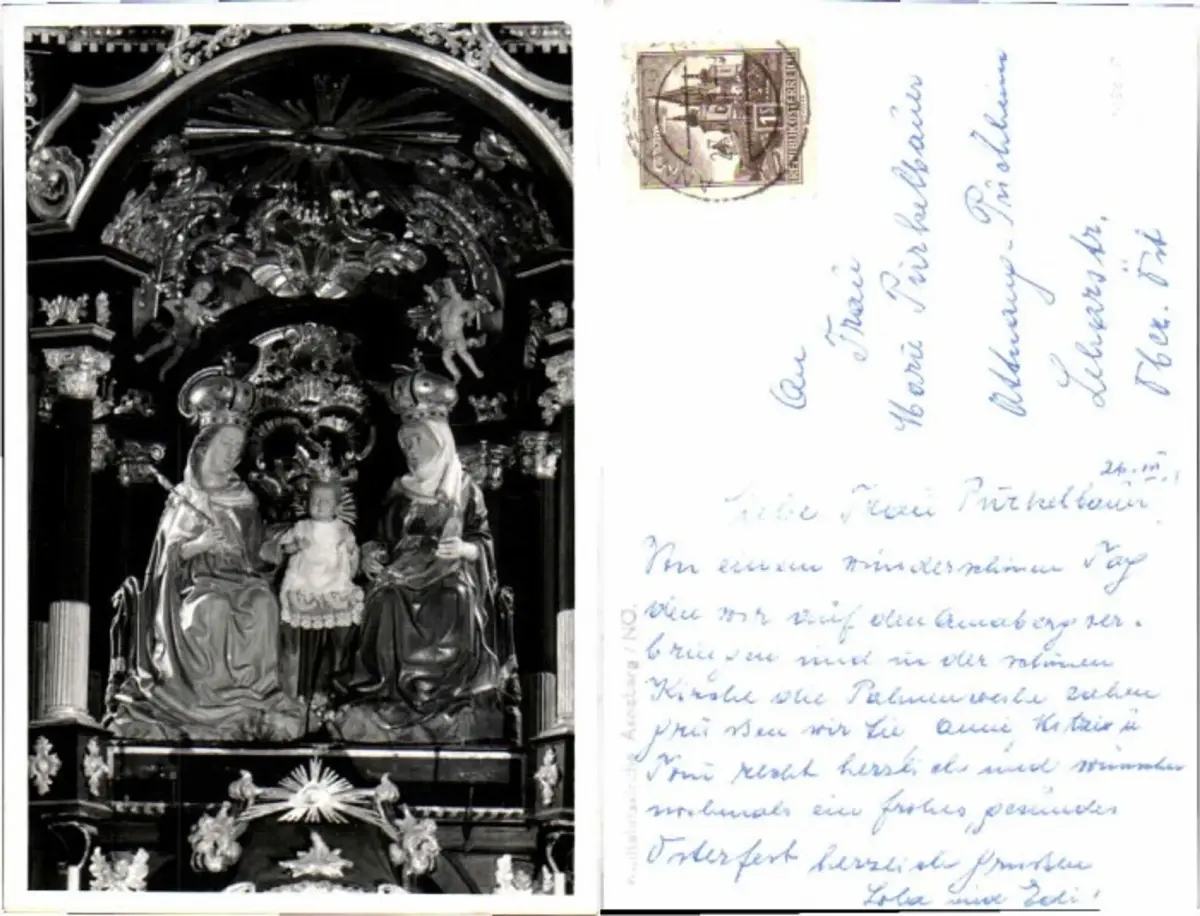 REPUBLIK ÖSTERREICH
An
Frau
Marie Pürkelbauer
Attnang-Puchheim
Leharstr.
Ober. Öst
26.III.
Liebe Frau Pürkelbauer
Von einem wunderschönen Tag
den wir auf den Annaberg ver-
bringen und in der schönen
Kirche die Palmenweihe sahen
grüßen wir Sie
Toni recht herzlich und wünschen
nochmals ein frohes, gesundes
Osterfest herzlich grüßen
und Edi!
Annaberg / NÖ.